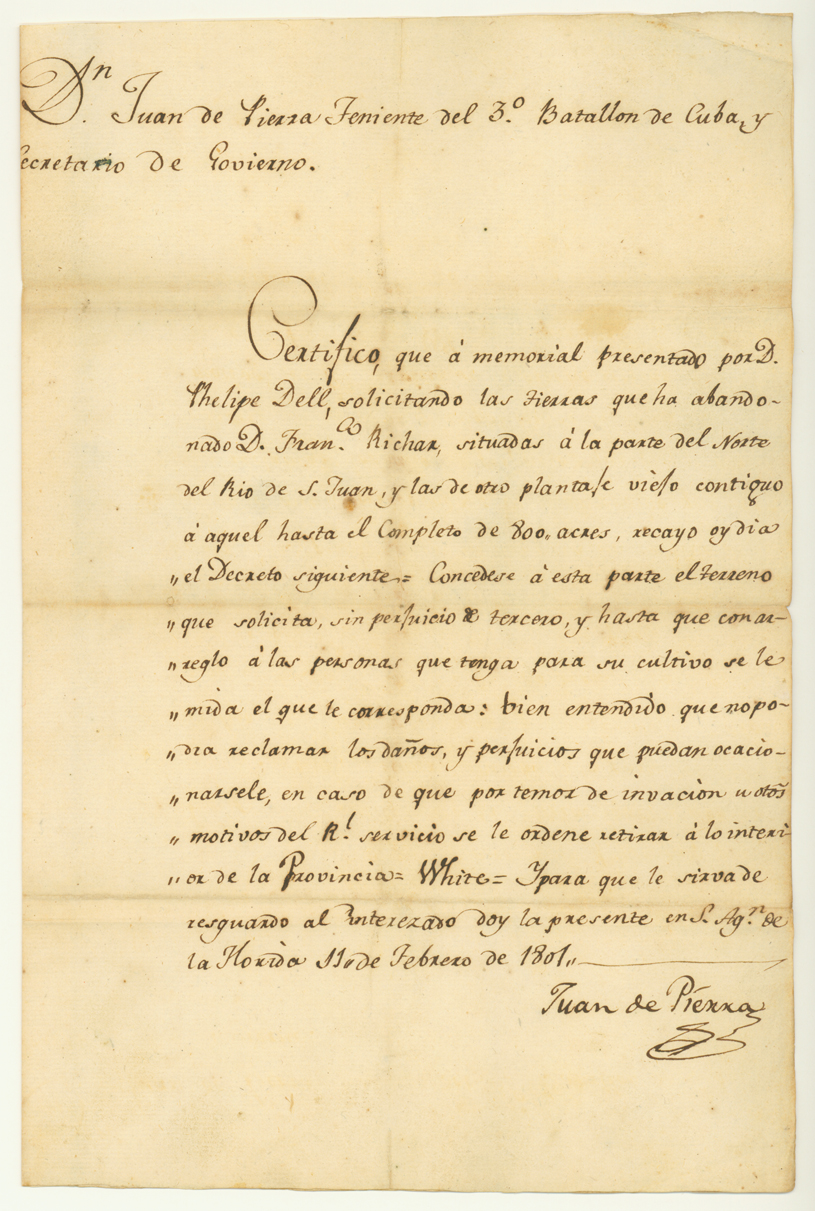 Dn. Juan de Pierra Teniente del 3.º Batallon de Cuba, y
Secretario de Govierno.
Certifico, que á memorial presentado por D.
Phelipe Dell, solicitando las tierras que ha abando-
nado D. Fran.co Richar, situadas á la parte del Norte
del Rio de S. Juan, y las de otro plantaje viejo contiguo
á aquel hasta el Completo de 800,, acres, recayo oy dia
,, el Decreto siguiente = Concedese á esta parte el terreno
,, que solicita, sin perjuicio de tercero, y hasta que con ar-
,, reglo á las personas que tenga para su cultivo se le
,, mida el que le corresponda: bien entendido que no po-
,, dra reclamar los daños, y perjuicios que puedan ocacio-
,, narsele, en caso de que por temor de invacion u otros
,, motivos del Rl. servicio se le ordene retirar á lo interi-
,, or de la Provincia = White = Y para que le sirva de
resguardo al interezado doy la presente en S. Ag.n de
la Florida 11,, de Febrero de 1801,,
Juan de Pierra